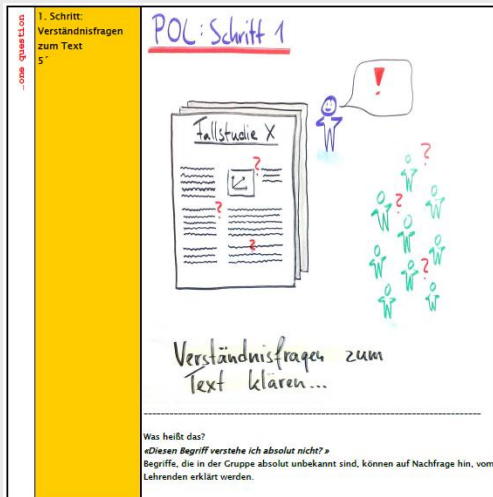 ..one question
1. Schritt:
Verständnisfragen
zum Text
5´
POL: Schritt 1
!
Fallstudie X
?
?
?
?
?
?
Verständnisfragen zum
Text klären...
Was heißt das?
«Diesen Begriff verstehe ich absolut nicht? »
Begriffe, die in der Gruppe absolut unbekannt sind, können auf Nachfrage hin, vom
Lehrenden erklärt werden.